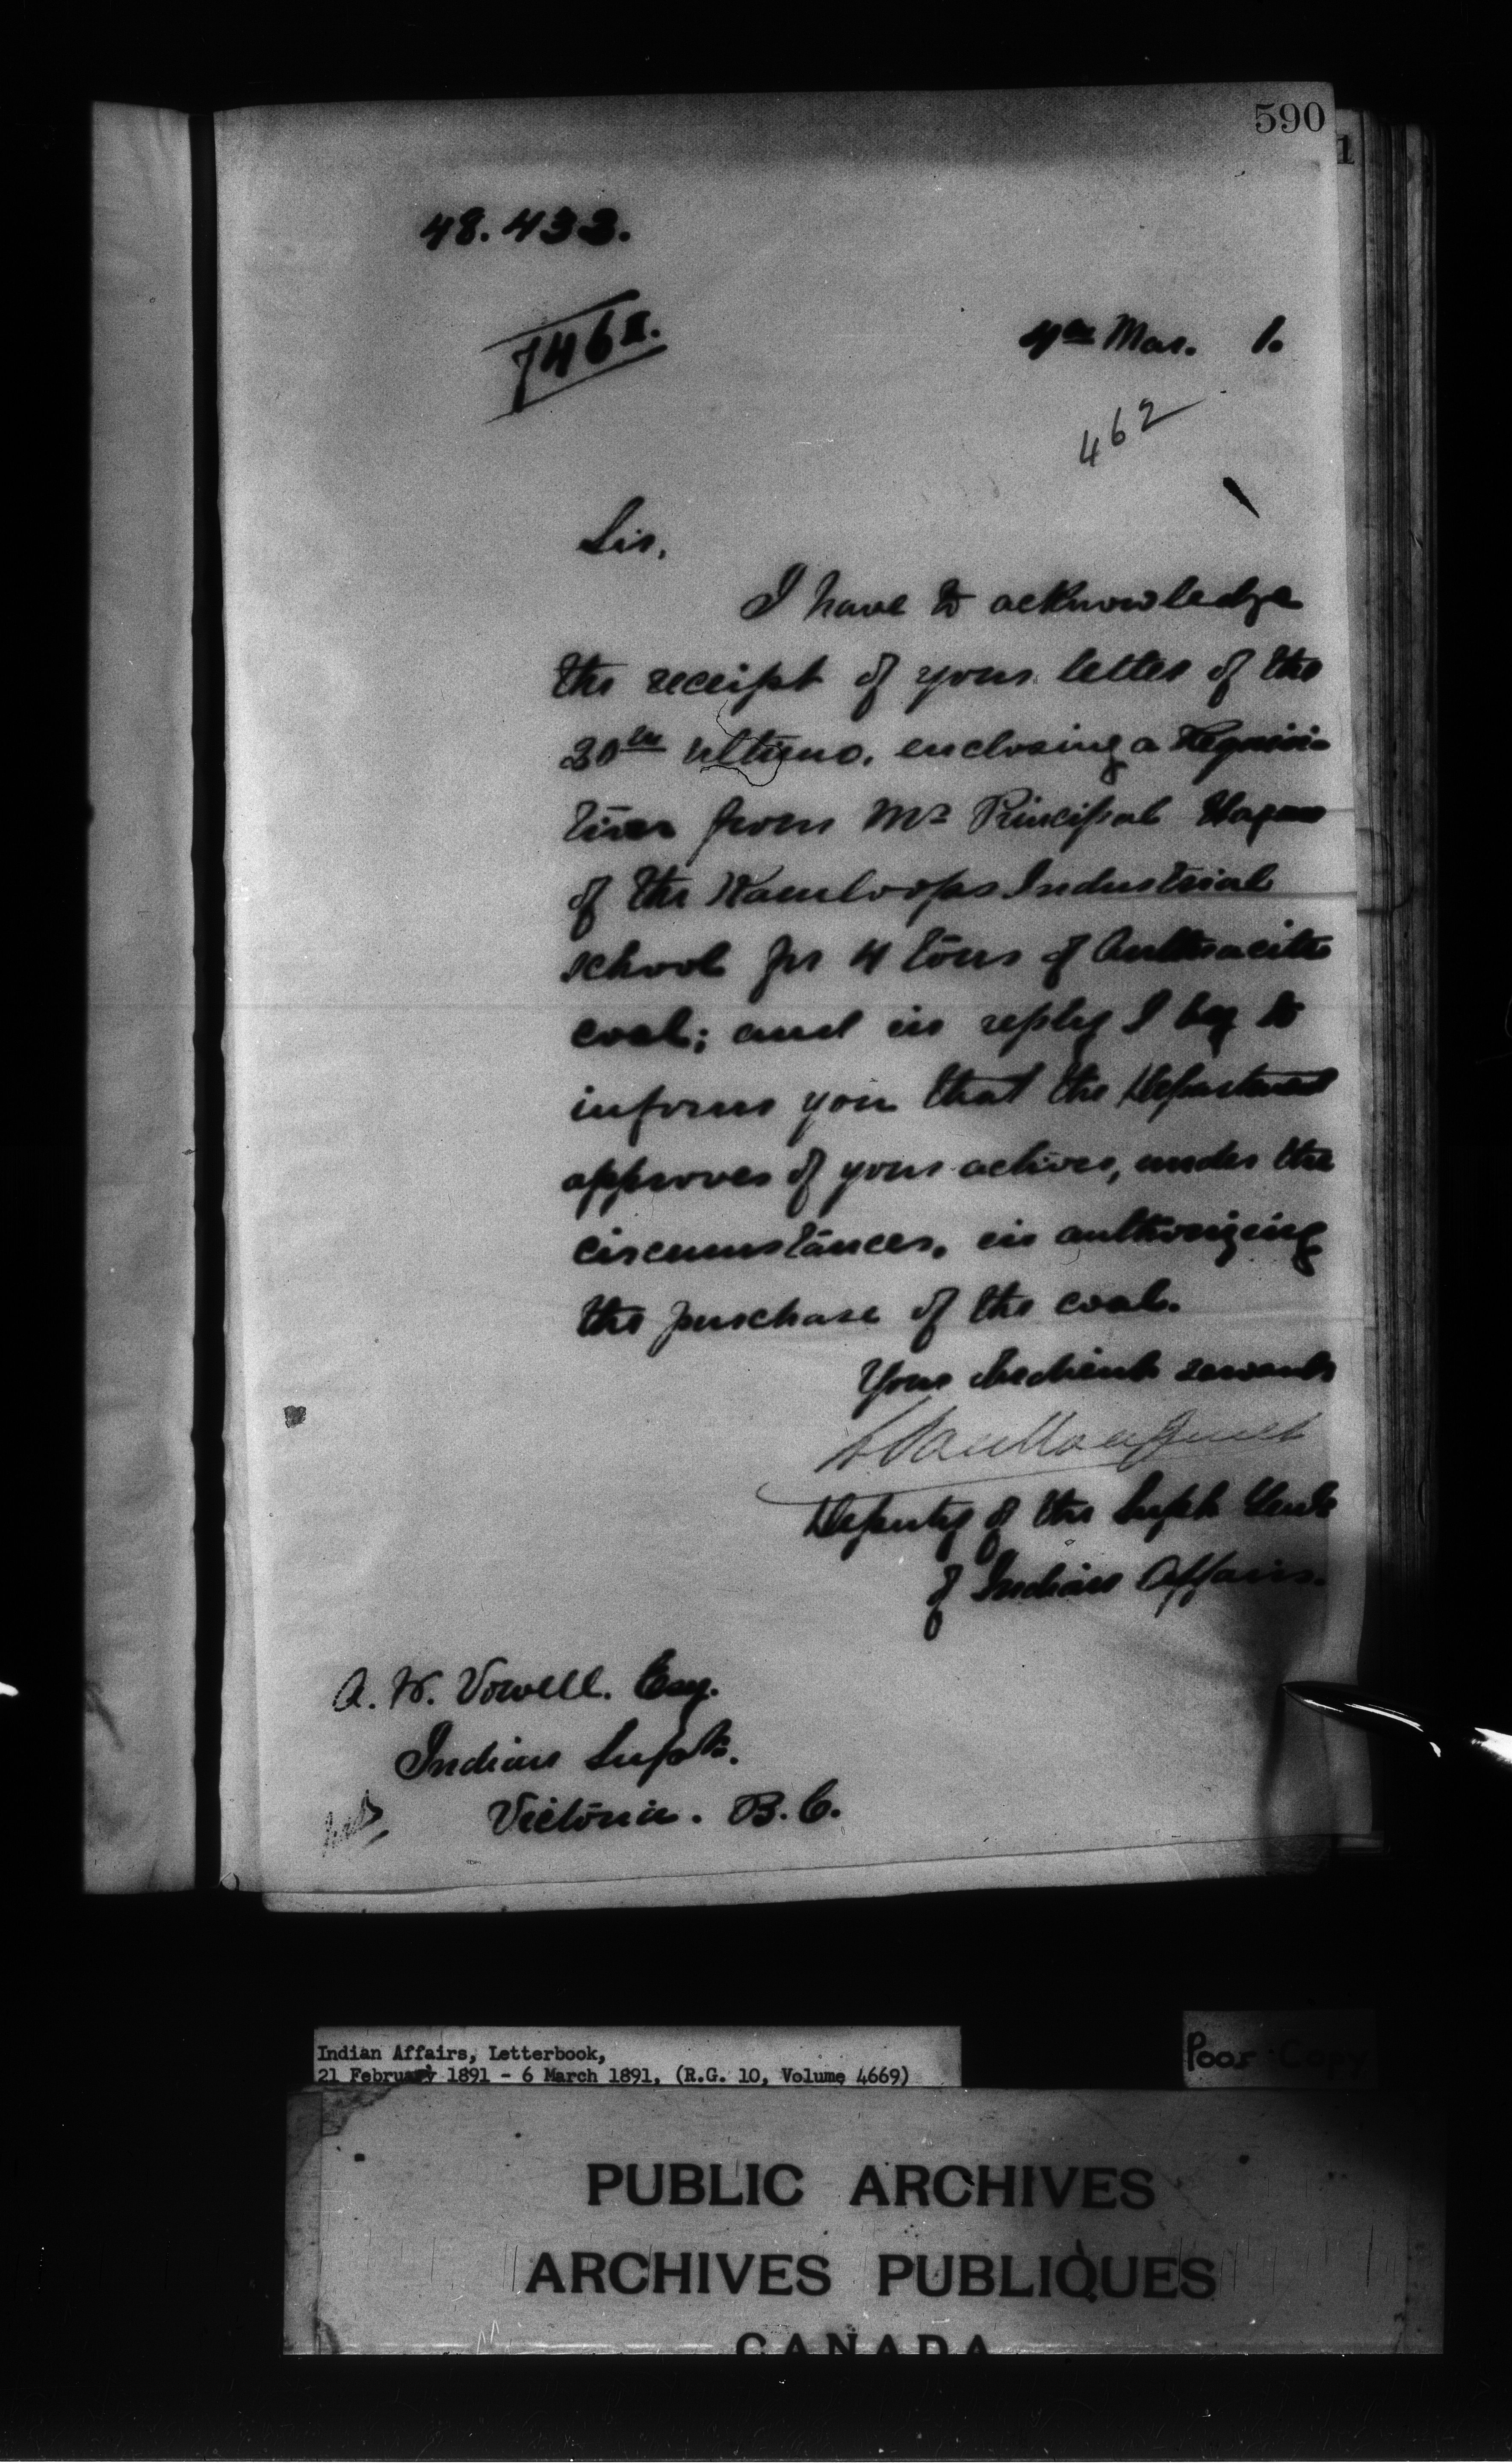 590
1
48.433.
746 II.
4th Mar. 1.
462
Sir,
I have to acknowledge
the receipt of your letter of the
20th ultimo, enclosing a Requisi-
tion from Mr Principal Hagan
of the Kamloops Industrial
school for 4 tons of Anthracite
coal; and in reply I beg to
inform you that the Department
approves of your action, under the
circumstances, in authorizing
the purchase of the coal.
Your obedient servant
L VanKoughnet
Deputy of the Supt Genl
of Indian Affairs.
A. W. Vowell. Esq.
Indian Supt.
Victoria. B.C.
Indian Affairs, Letterbook,
21 February 1891 - 6 March 1891, (R.G. 10, Volume 4669)
Poor Copy
PUBLIC ARCHIVES
ARCHIVES PUBLIQUES
CANADA